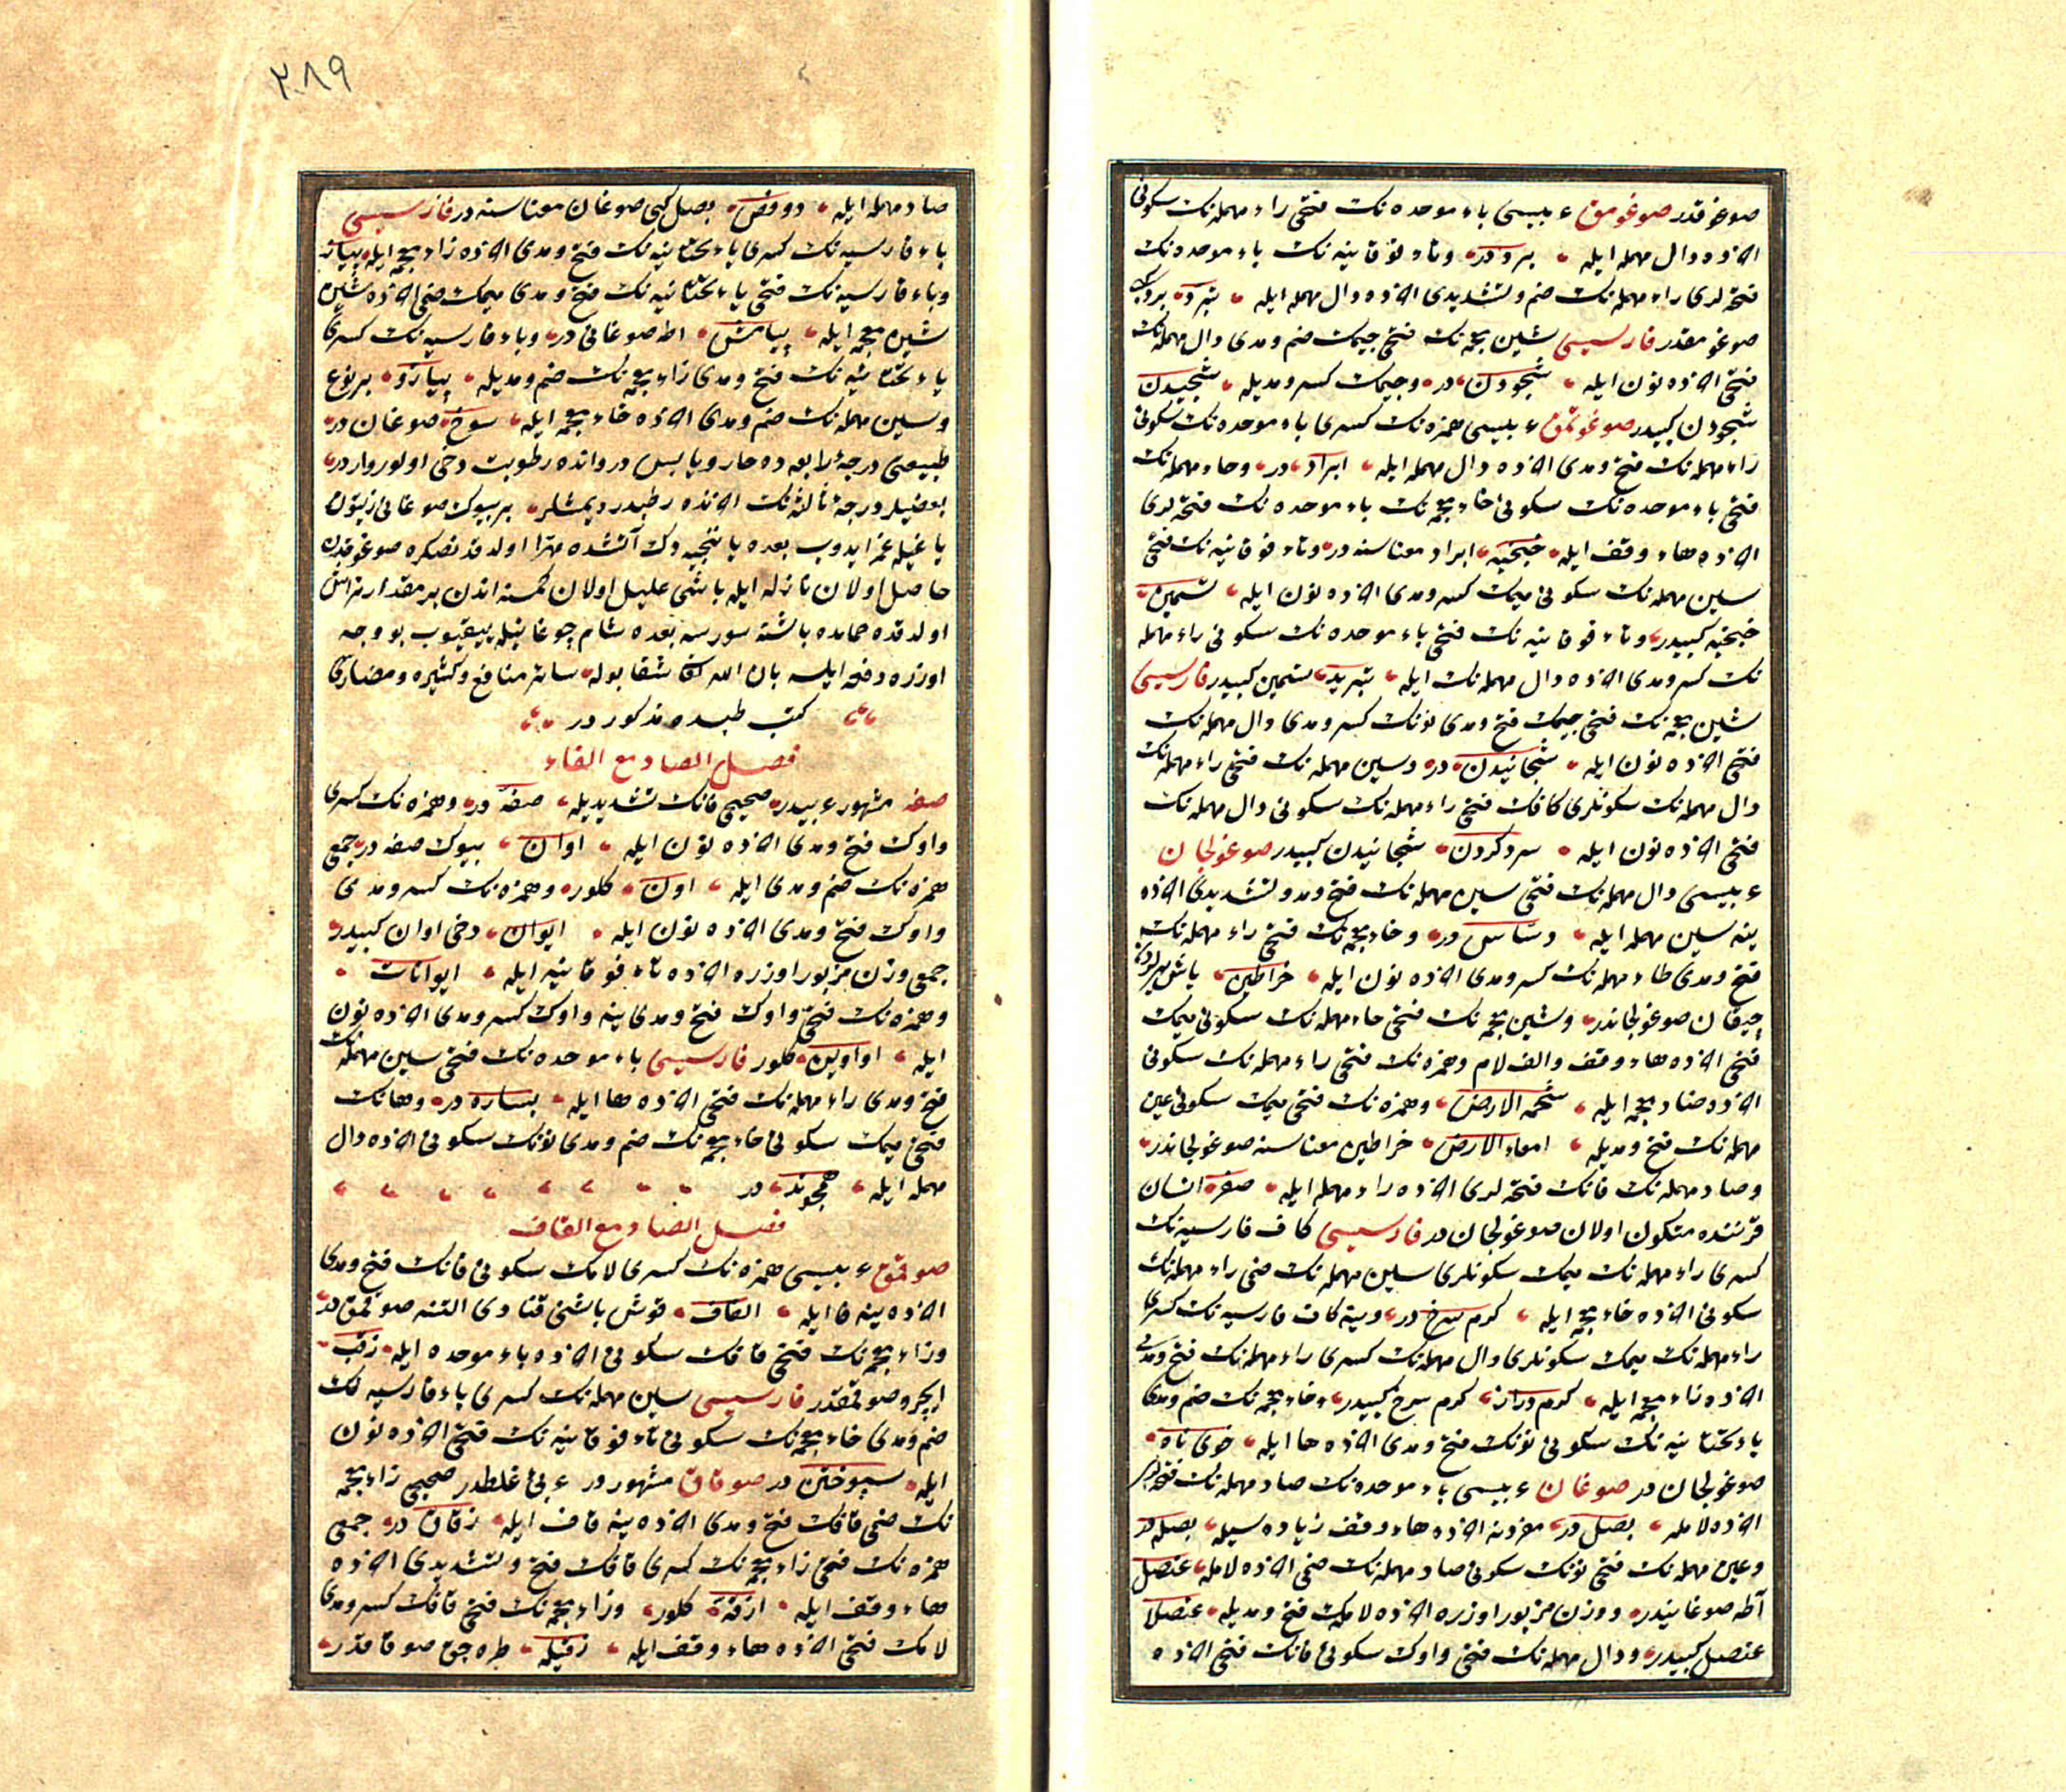 صوغقدر صوغومق عربيسى باء موحده نك فتحى راء مهمله نك سكونى
آخذه دال مهمله ايله برد در وتاء فوقانيه نك باء موحده نك
فتحه لرى راء مهمله نك ضم وتشديدى آخذه دال مهمله ايله تبرد برد كبى
صوغومقدر فارسيسى شين معجمه نك فتحى جيمك ضم ومدى دال مهمله نك
فتحى آخذه نون ايله شجودن در وجيمك كسر ومديله شجيدن
شجودن كبيدر صوغوتمق عربيسى همزه نك كسرى باء موحده نك سكونى
راء مهمله نك فتح ومدى آخذه دال مهمله ايله ابراد در وخاء مهمله نك
فتحى باء موحده نك سكونى خاء معجمه نك باء موحده نك فتحه لرى
آخذه هاء وقف ايله خبخبه ابراد معناسنه در وتاء فوقانيه نك فتحى
سين مهمله نك سكونى ميمك كسر ومدى آخذه نون ايله تسمين
خبخبه كبيدر وتاء فوقانيه نك فتحى باء موحده نك سكونى راء مهمله
نك كسر ومدى آخذه دال مهمله نك ايله تبريد تسمين كبيدر فارسيسى
شين معجمه نك فتحى جيمك فتح ومدى نونك كسر ومدى دال مهمله نك
فتحى آخذه نون ايله شجانيدن در وسين مهمله نك فتحى راء مهمله نك
دال مهمله نك سكونلرى كافك فتحى راء مهمله نك سكونى دال مهمله نك
فتحى آخذه نون ايله سرد كردن شجانيدن كبيدر صوغولجان
عربيسى دال مهمله نك فتحى سين مهمله نك فتح ومد وتشديدى آخذه
ينه سين مهمله ايله دساس در وخاء معجمه نك فتحى راء مهمله نك
فتح ومدى طاء مهمله نك كسر ومدى آخذه نون ايله خراطين ياش يرلردن
چيقان صوغولجاندر وشين معجمه نك فتحى حاء مهمله نك سكونى ميمك
فتحى آخذه هاء وقف والف لام وهمزه نك فتحى راء مهمله نك سكونى
آخذه ضاد معجمه ايله شحمة الارض وهمزه نك فتحى ميمك سكونى عين
مهمله نك فتح ومديله امعاء الارض خراطين معناسنه صوغولجاندر
وصاد مهمله نك فانك فتحه لرى آخذه راء مهمله ايله صفر انسان
قرننده متكون اولان صوغولجان در فارسيسى كاف فارسيه نك
كسرى راء مهمله نك ميمك سكونلرى سين مهمله نك ضمى راء مهمله نك
سكونى آخذه خاء معجمه ايله كرم سرخ در وينه كاف فارسيه نك كسرى
راء مهمله نك ميمك سكونلرى دال مهمله نك كسرى راء مهمله نك فتح ومدى
آخذه زاء معجمه ايله كرم دراز كرم سرخ كبيدر وخاء معجمه نك ضم ومدى
ياء تحتانيه نك سكونى نونك فتح ومدى آخذه ها ايله خوى ناه
صوغولجان در صوغان عربيسى باء موحده نك صاد مهمله نك فتحه لرى
آخذه لامله بصل در مفردنه آخذه هاء وقف زياده سيله بصله در
وعين مهمله نك فتحى نونك سكونى صاد مهمله نك ضمى آخذه لامله عنصل
آطه صوغانيدر ووزن مزبور اوزره آخذه لامك فتح ومديله عنصلا
عنصل كبيدر ودال مهمله نك فتحى واوك سكونى فانك فتحى آخذه
٢٨٩
صاد مهمله ايله دوفص بصل كبى صوغان معناسنه در فارسيسى
باء فارسيه نك كسرى ياء تحتانيه نك فتح ومدى آخذه زاء معجمه ايله پياز
وباء فارسيه نك فتحى ياء تحتانيه نك فتح ومدى ميمك ضمى آخذه شين
شين معجمه ايله پيامش اطه صوغانى در وباء فارسيه نك كسرى
ياء تحتانيه نك فتح ومدى زاء معجمه نك ضم ومديله پيازو بر نوع
وسين مهمله نك ضم ومدى آخذه خاء معجمه ايله سوخ صوغان در
طبيعتى درجۀ رابعه ده حار ويابس در وانده رطوبت دخى اولور وار در
بعضيلر درجۀ ثالثه نك آخذنده رطبدر ديمشلر بر بيوك صوغانى زيتون
ياغيله غزايدوب بعده يا تنجيره وك آتشده مهرا اولدقدنصكره صوغوقدن
حاصل اولان نازله ايله باشى عليل اولان كمسنه اندن بر مقدار تراش
اولدقده حمامده باشنه سورسه بعده شام چوغانيله ييقيوب بو وجه
اوزره دفعه ايلسه باذن الله تعالى شفا بوله سائر منافع وكثيره ومضارى
كتب طبده مذكور در
فصل الصاد مع الفاء
صفه مشهور عربيدر صحيحى فانك تشديديله صفه در وهمزه نك كسرى
واوك فتح ومدى آخذه نون ايله اوان بيوك صفه در جمعى
همزه نك ضم ومدى ايله اون كلور وهمزه نك كسر ومدى
واوك فتح ومدى آخذه نون ايله ايوان دخى اوان كبيدر
جمعى وزن مزبور اوزره آخذه تاء فوقانيه ايله ايوانات
وهمزه نك فتحى واوك فتح ومدى ينه واوك كسر ومدى آخذه نون
ايله اواوين كلور فارسيسى باء موحده نك فتحى سين مهمله نك
فتح ومدى راء مهمله نك فتحى آخذه ها ايله بساره در وهانك
فتحى ميمك سكونى خاء معجمه نك ضم ومدى نونك سكونى آخذه دال
مهمله ايله همخوند در
فصل الصاد مع القاف
صوقمق عربيسى همزه نك كسرى لامك سكونى قانك فتح ومدى
آخذه ينه فا ايله القاف قوش باشنى قنادى التنه صوقمق در
وزاء معجمه نك فتحى قافك سكونى آخذه باء موحده ايله زقب
ايچرو صوقمقدر فارسيسى سين مهمله نك كسرى باء فارسيه نك
ضم ومدى خاء معجمه نك سكونى تاء فوقانيه نك فتحى آخذه نون
ايله سپوختن در صوقاق مشهور در عربى غلطدر صحيحى زاء معجمه
نك ضمى قافك فتح ومدى آخذه ينه قاف ايله زقاق در جمعى
همزه نك فتحى زاء معجمه نك كسرى قافك فتح وتشديدى آخذه
هاء وقف ايله ازقه كلور وزاء معجمه نك فتحى قافك كسر ومدى
لامك فتحى آخذه هاء وقف ايله زقيله طره جق صوقاقدر